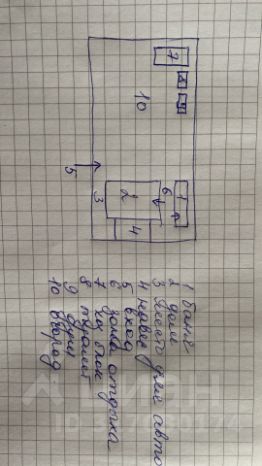 1 баня
2 дом
3 место для авто
4 навес
5 вход
6 зона отдыха
7 хоз блок
8 туалет
9 душ
10 огород
7
8
9
10
5
3
2
6
1
4